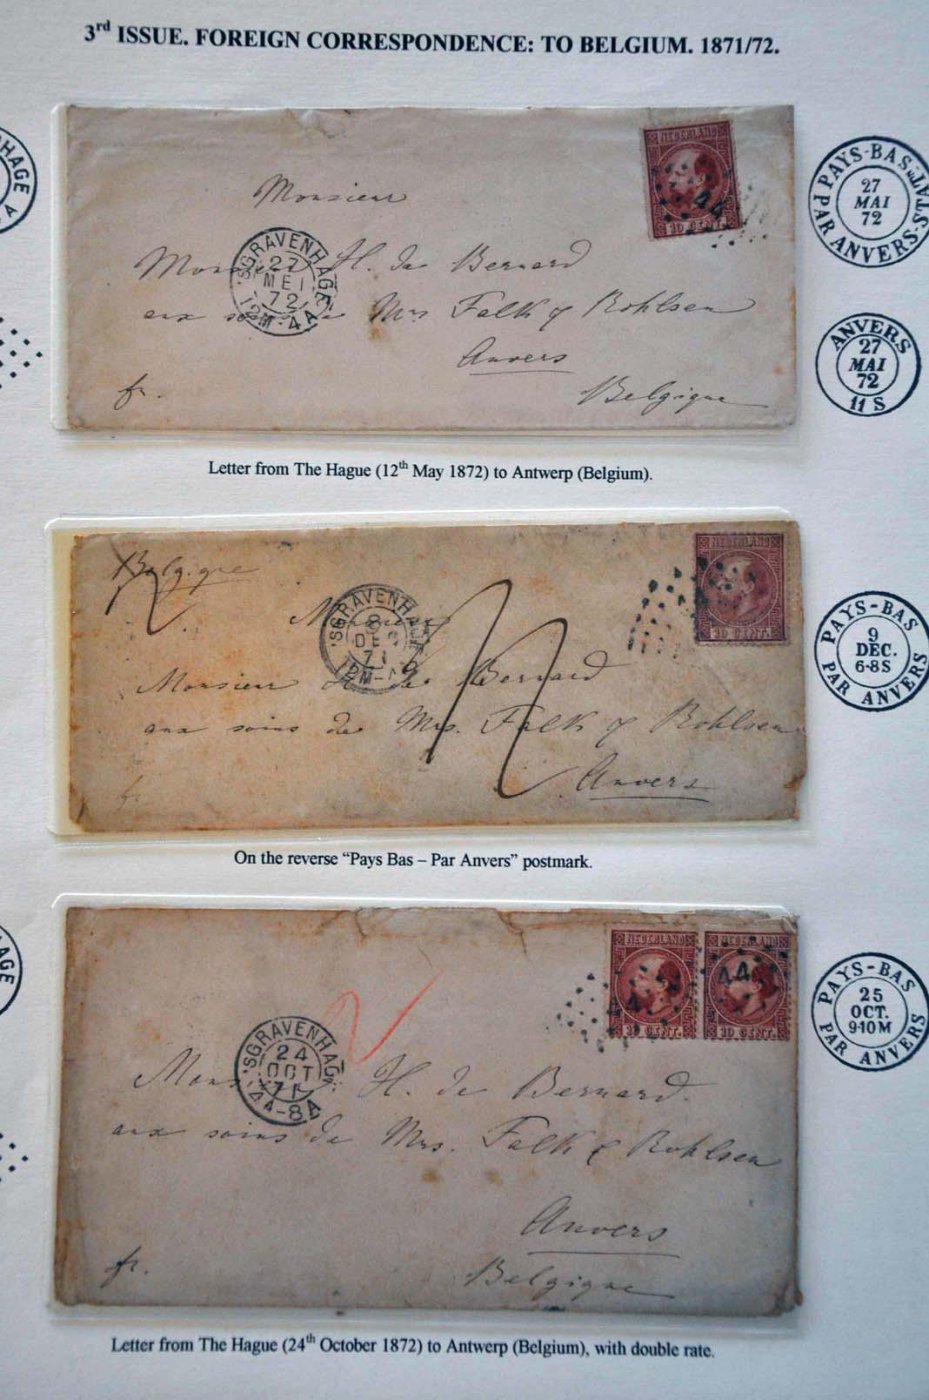 3rd ISSUE. FOREIGN CORRESPONDENCE: TO BELGIUM. 1871/72.
NEDERLAND
10 CENT.
44
Monsieur
Monsieur H. de Bernard
aux soins de Mrs Falk & Bohlsen
Anvers
Belgique
fr.
'SGRAVENHAGE
27
MEI
72
12M-4A
HAGE
A
PAYS-BAS
PAR ANVERS
27
MAI
72
ANVERS
27
MAI
72
11 S
Letter from The Hague (12th May 1872) to Antwerp (Belgium).
Belgique
NEDERLAND
10 CENT.
'SGRAVENHAGE
8
DEC
71
Monsieur
Monsieur H. de Bernard
aux soins de Mrs. Falk & Bohlsen
Anvers
fr.
PAYS-BAS
PAR ANVERS
9
DEC.
6-8S
On the reverse “Pays Bas – Par Anvers” postmark.
NEDERLAND NEDERLAND
44
10 CENT. 10 CENT.
'SGRAVENHAG
24
OCT
71
4A-8A
Mons H. de Bernard.
aux soins de Mrs. Falk & Bohlsen
Anvers
Belgique
fr.
AGE
PAYS-BAS
PAR ANVERS
25
OCT.
9-10M
Letter from The Hague (24th October 1872) to Antwerp (Belgium), with double rate.